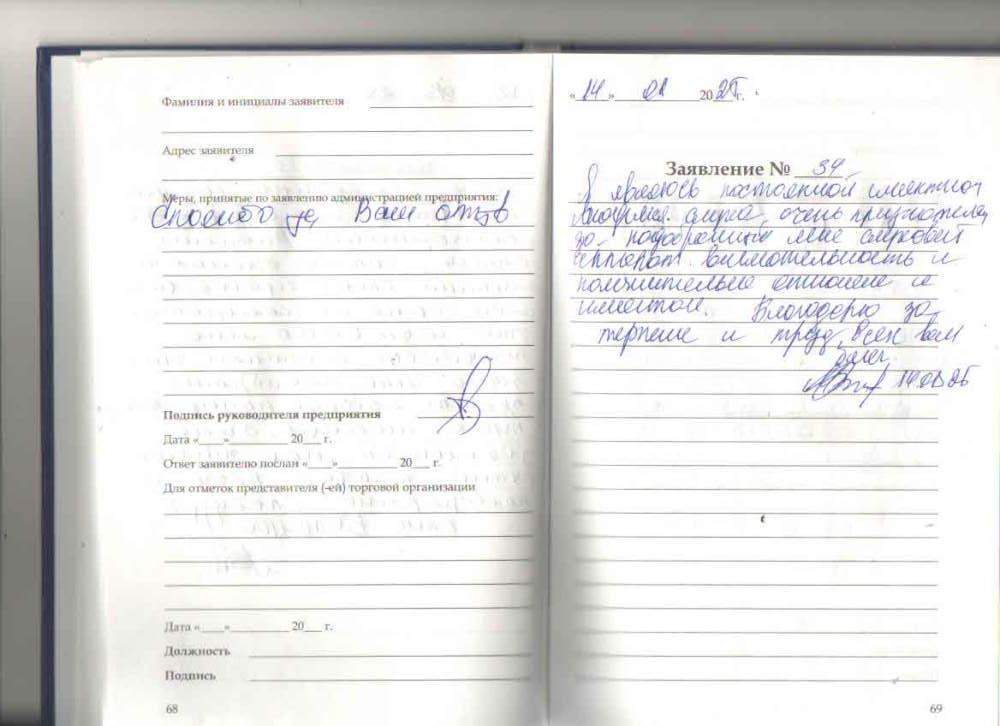 Фамилия и инициалы заявителя
Адрес заявителя
Меры, принятые по заявлению администрацией предприятия:
Спасибо за Ваш отзыв
Подпись руководителя предприятия
Дата «___»__________ 20___ г.
Ответ заявителю послан «___»__________ 20___ г.
Для отметок представителя (-ей) торговой организации
Дата «___»__________ 20___ г.
Должность
Подпись
68
«14» 01 2025г.
Заявление № 34
Я являюсь постоянной клиенткой
слуха, очень признательна
за подобранный мне слуховой
аппарат. внимательность и
отношение с
клиентом. Благодарю за
терпение и труд, всех вам
благ.
14.01.25
69